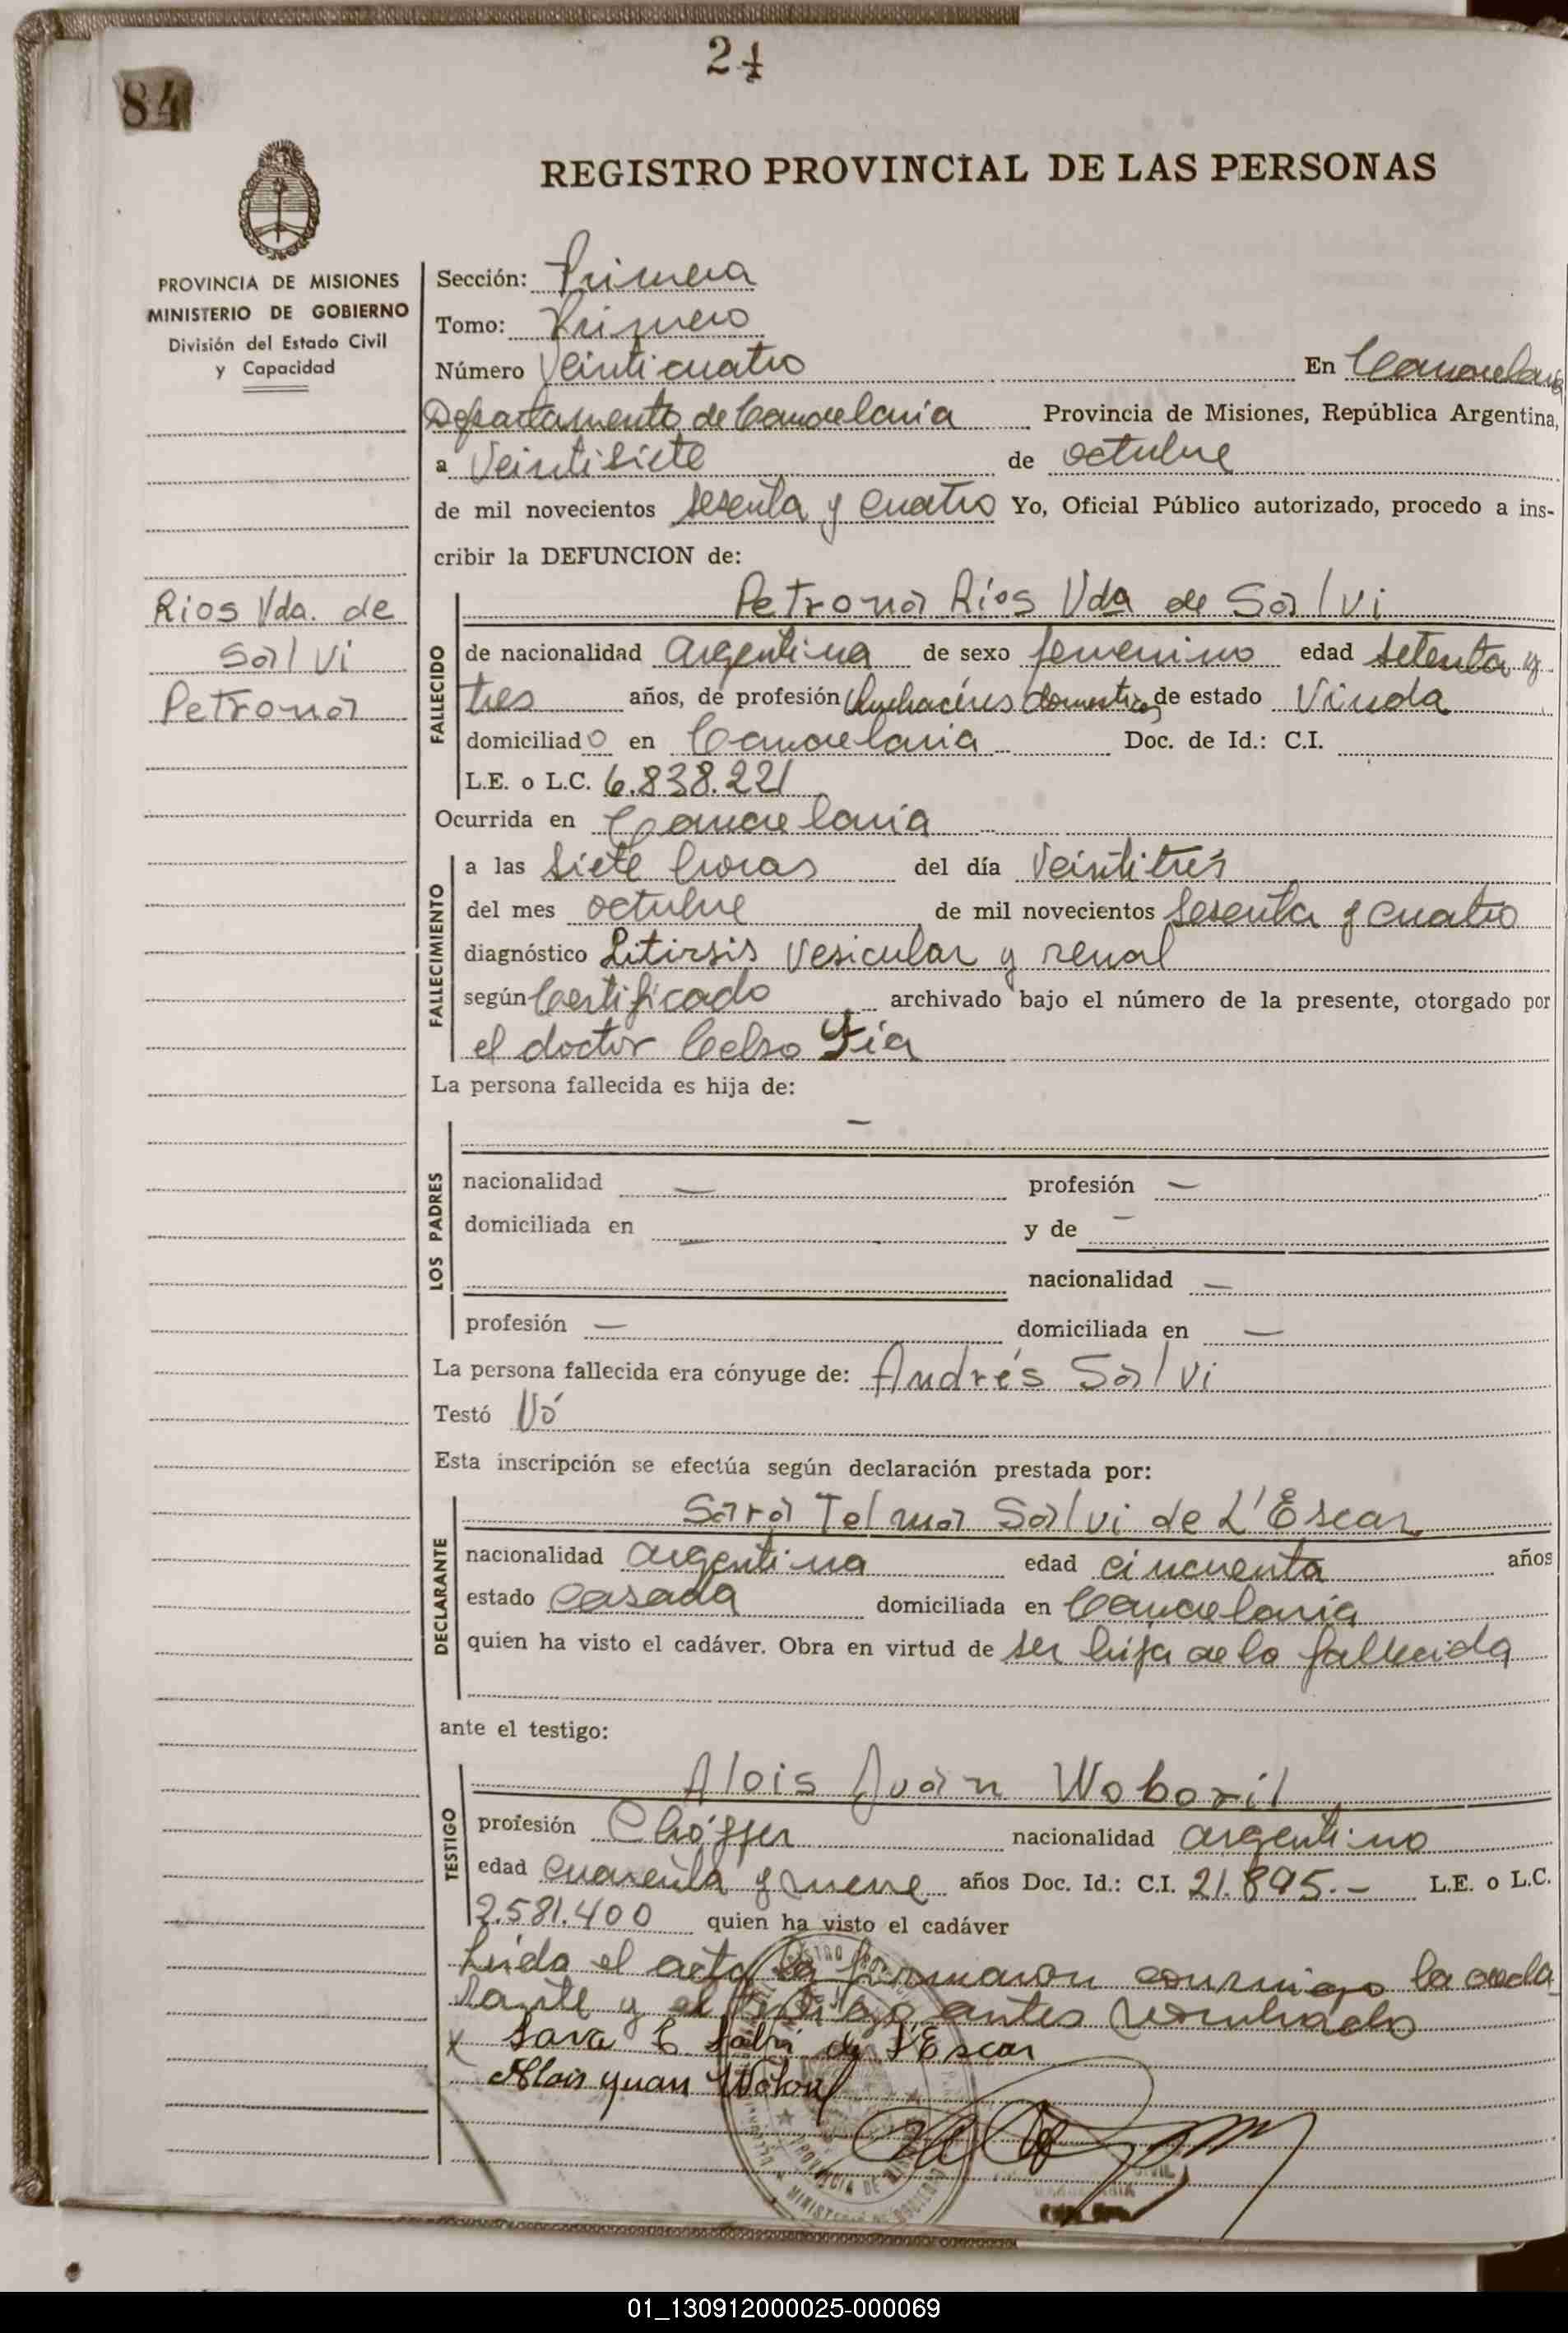 24
84
REGISTRO PROVINCIAL DE LAS PERSONAS
PROVINCIA DE MISIONES
MINISTERIO DE GOBIERNO
División del Estado Civil
y Capacidad
Sección: Primera
Tomo: Primero
Número Veinticuatro En Candelaria
Departamento de Candelaria Provincia de Misiones, República Argentina,
a Veintisiete de octubre
de mil novecientos sesenta y cuatro Yo, Oficial Público autorizado, procedo a ins-
cribir la DEFUNCION de:
Rios Vda. de
Salvi
Petrona
FALLECIDO
Petrona Ríos Vda de Salvi
de nacionalidad argentina de sexo femenino edad setenta y
tres años, de profesión domesticos de estado Viuda
domiciliado en Candelaria Doc. de Id.: C.I.
L.E. o L.C. 6.838.221
Ocurrida en Candelaria
FALLECIMIENTO
a las siete horas del día Veintitrés
del mes octubre de mil novecientos sesenta y cuatro
diagnóstico Vesicular y renal
según Certificado archivado bajo el número de la presente, otorgado por
el doctor Celso
La persona fallecida es hija de:
LOS PADRES
—
nacionalidad — profesión —
domiciliada en — y de —
nacionalidad —
profesión — domiciliada en —
La persona fallecida era cónyuge de: Andrés Salvi
Testó
Esta inscripción se efectúa según declaración prestada por:
DECLARANTE
Sara Telma Salvi de L'Escar
nacionalidad argentina edad cincuenta años
estado casada domiciliada en Candelaria
quien ha visto el cadáver. Obra en virtud de ser hija de la fallecida
ante el testigo:
TESTIGO
Alois Juan Woboril
profesión Chóffer nacionalidad argentino
edad cuarenta y nueve años Doc. Id.: C.I. 21.895.- L.E. o L.C.
2.581.400 quien ha visto el cadáver
Leida el acta la firmaron conmigo la decla
rante y el testigo antes nombrados
x Sara T. Salvi de L'Escar
Alois Juan Woboril
PROVINCIA DE
01_130912000025-000069